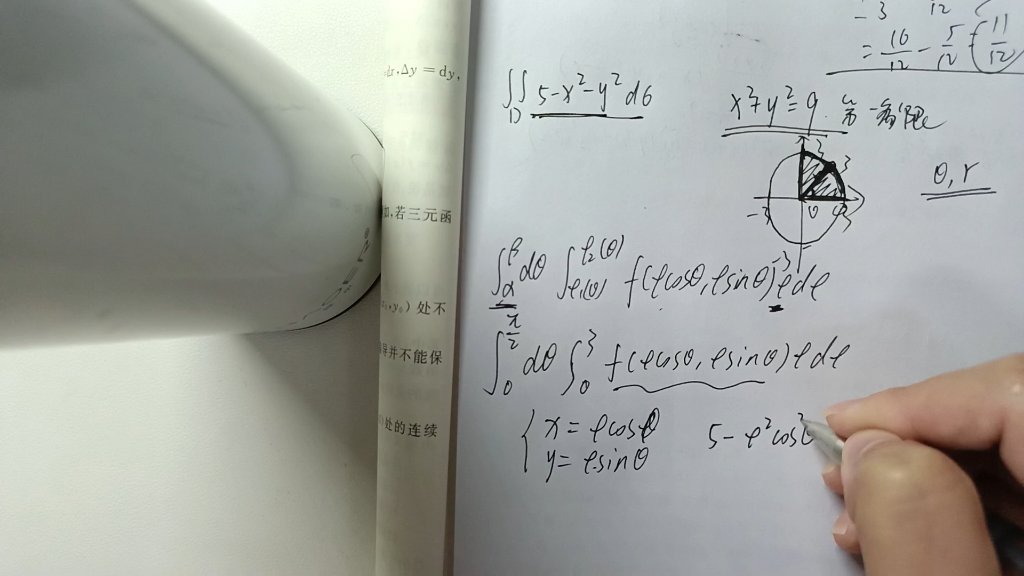 Δy = dy,
若三元函
处不
并不能保
处的连续
- 3 12
= 16/12 - 5/12 = 11/12
∬_D 5-x²-y² dσ
x²+y²=9 第一象限
3
3
-3
0
3
-3
θ, r
∫_α^β dθ ∫_{ρ₁(θ)}^{ρ₂(θ)} f(ρcosθ, ρsinθ) ρdρ
∫_0^{π/2} dθ ∫_0^3 f(ρcosθ, ρsinθ) ρdρ
{ x = ρcosθ
y = ρsinθ
5 - ρ²cos²